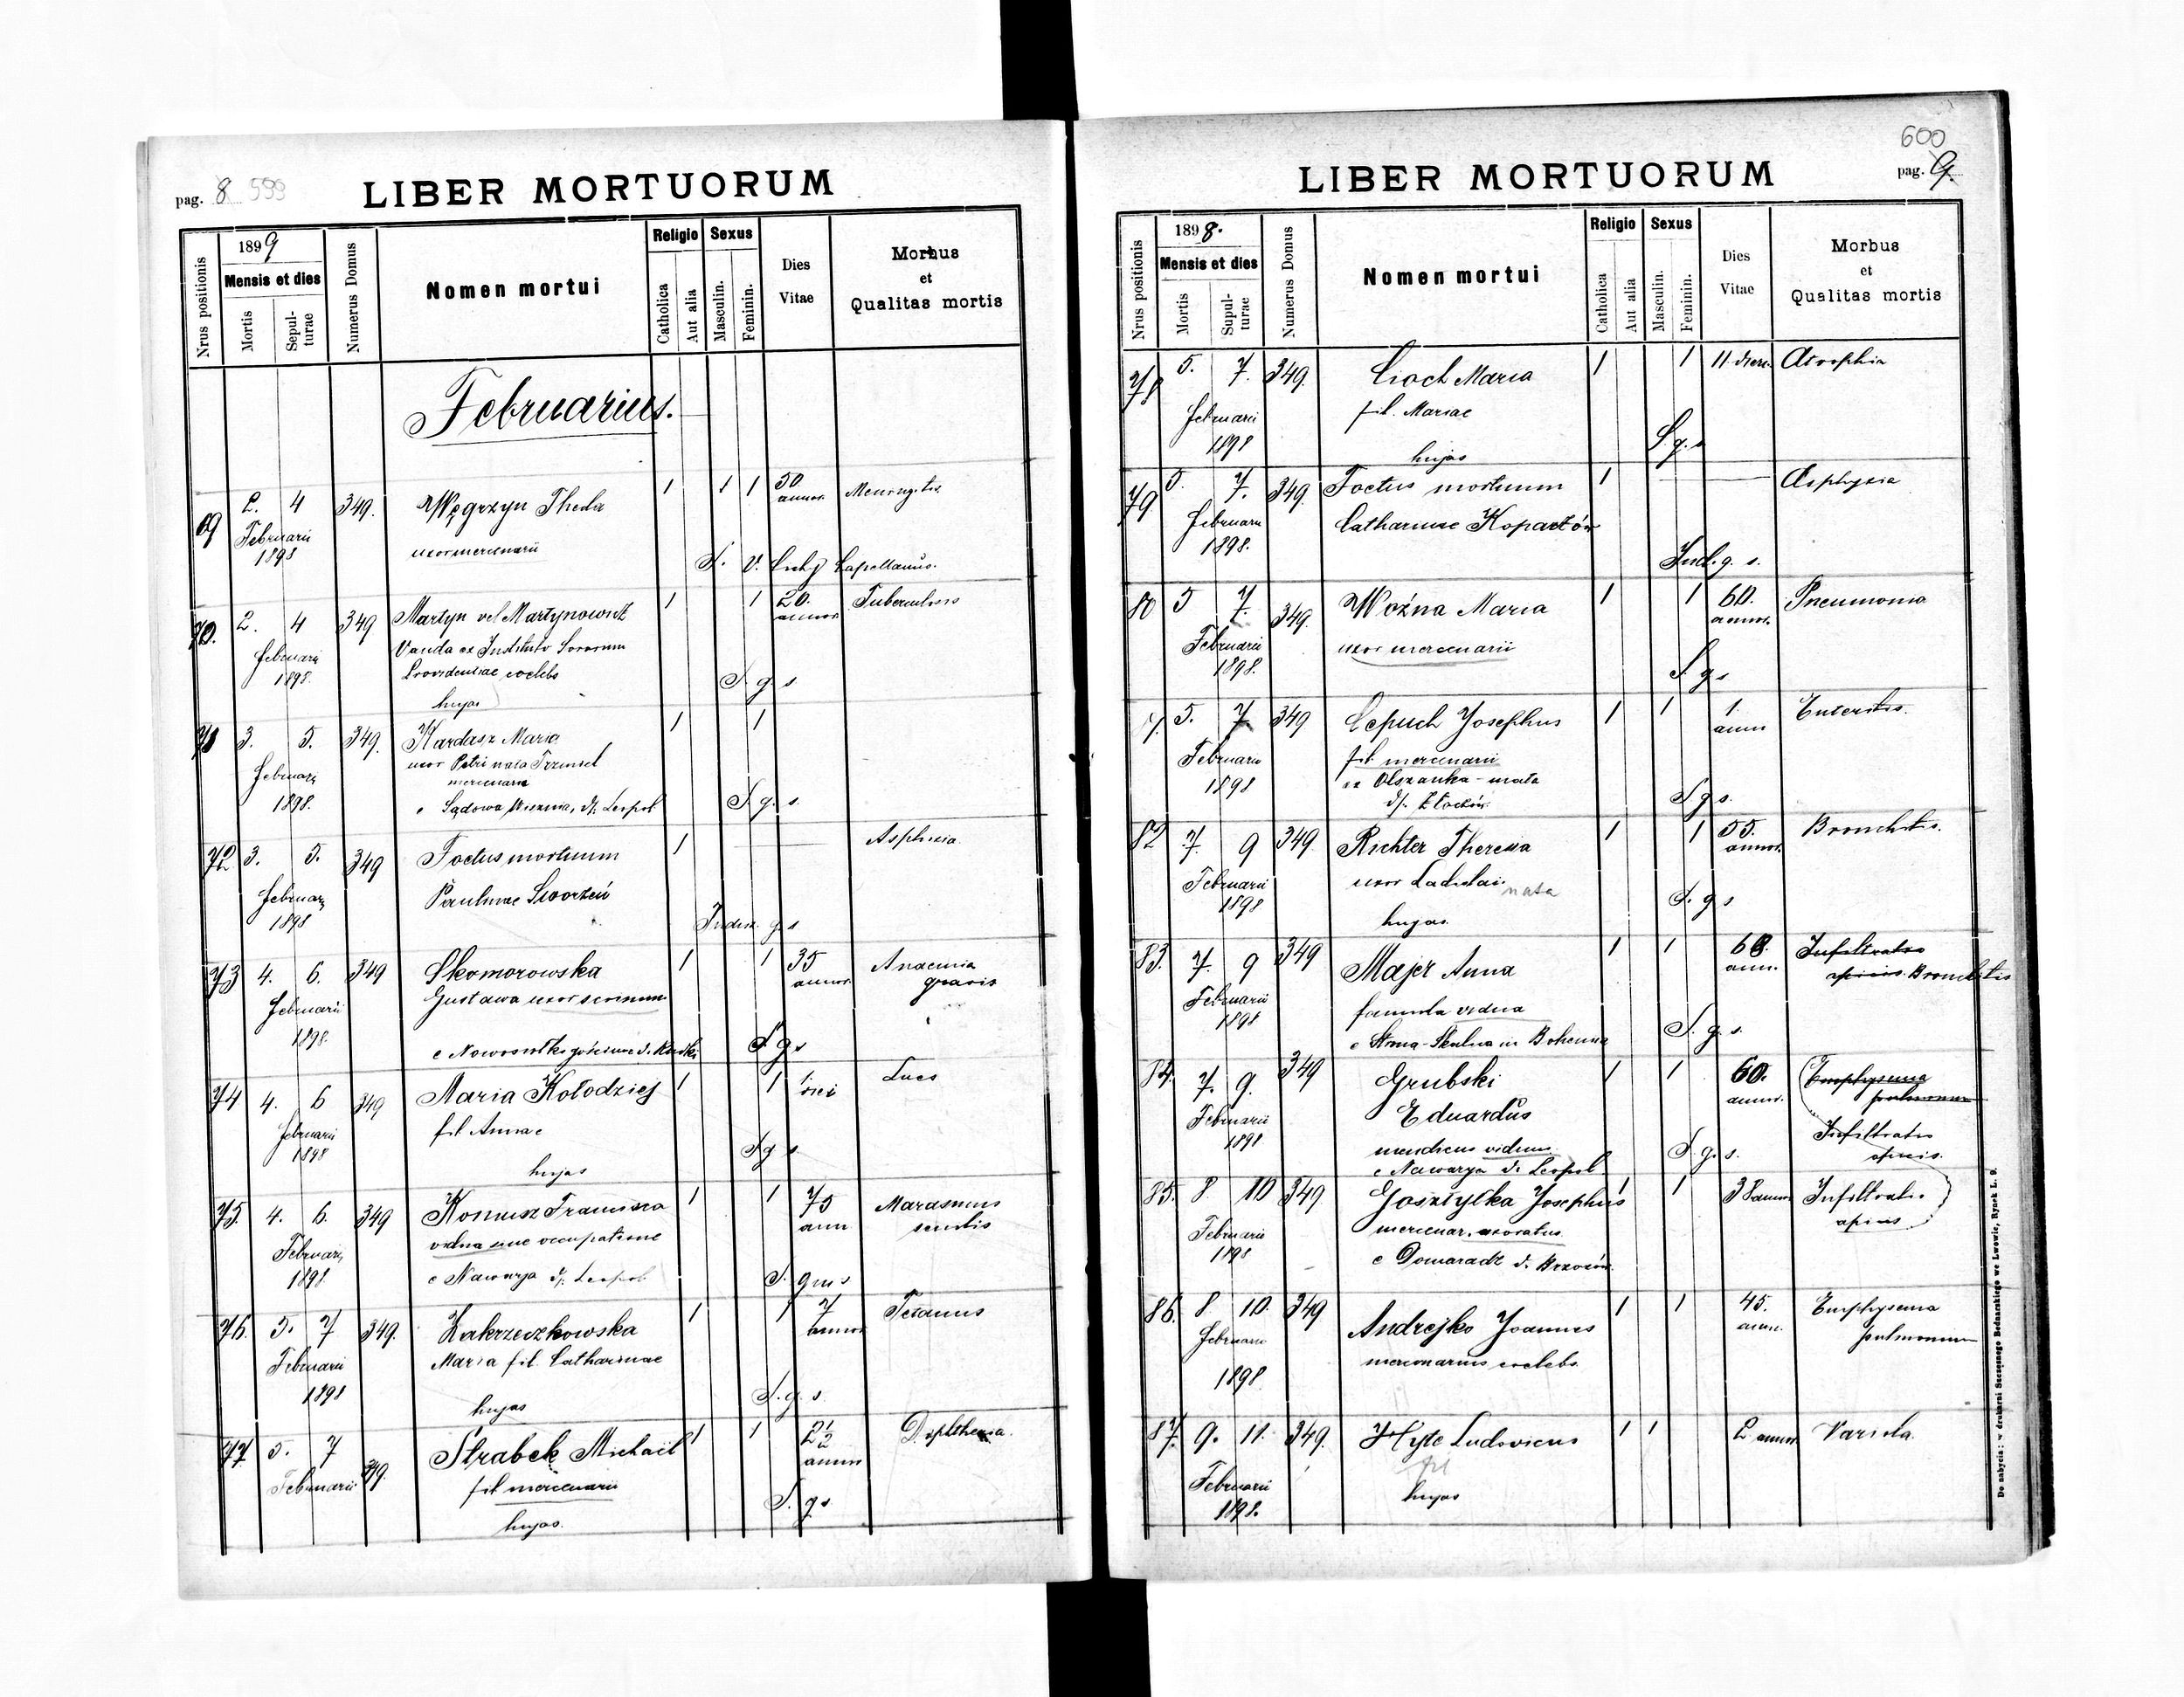 pag. 8 599
LIBER MORTUORUM
Nrus positionis
1899
Mensis et dies
Mortis
Sepul-
turae
Numerus Domus
Nomen mortui
Religio
Catholica
Aut alia
Sexus
Masculin.
Feminin.
Dies
Vitae
Morbus
et
Qualitas mortis
Februarius.
69 2. 4 349. Węgrzyn Thecla 1 1 1 50 annor. Meningitis
Februarii
1898
uxor mercenarii
S. V. Capellanus.
70. 2. 4 349 Martyn vel Martynowicz 1 1 20. annor. Tuberculosis
Februarii
1898.
Vanda ex Instituto Sororum
Providentiae coelebs
hujas
S. g. s
71 3. 5. 349. Kardasz Maria 1 1
Februarii
1898.
uxor Petri nata
mercenaria
e Sądowa Wisznia, d. Leopol
S. g. s.
72 3. 5. 349 Foetus mortuum 1 Asphixia
Februarii
1898
Paulinae Stworzeń
g s
73 4. 6. 349 Skomorowska 1 1 35 annor. Anaemia
gravis
Februarii
1898.
Gustawa uxor
e Nowosiołki gościnne d. Rudki
S. g s
74 4. 6 349 Maria Kołodziej 1 1 1 Lues
Februarii
1898
fil Annae
hujas
S g s
75. 4. 6. 349 Komusz Francisca 1 1 75 ann Marasmus
senilis
Februarii
1898.
vidua sine occupatione
e Nawarya d. Leopol
S.
76. 5. 7 349. Zakrzeczkowska 1 1 7 annor Tetanus
Februarii
1898
Maria fil. Catharinae
hujas
S. g. s
77 5. 7 349. Strabek Michaël 1 1 2½ annor Diphtheria.
Februarii
fil mercenarii
hujas.
S. g. s
600
pag. 9.
LIBER MORTUORUM
Nrus positionis
1898.
Mensis et dies
Mortis
Supul-
turae
Numerus Domus
Nomen mortui
Religio
Catholica
Aut alia
Sexus
Masculin.
Feminin.
Dies
Vitae
Morbus
et
Qualitas mortis
78 5. 7. 349. Cioch Maria 1 1 11 dierum Atrophia
Februarii
1898
fil. Mariae
hujas
S. g. s
79 5. 7. 349 Foetus mortuum 1 Asphyxia
Februarii
1898.
Catharinae
g. s.
80 5 7. 349. Woźna Maria 1 1 60. annor. Pneumonia
Februarii
1898.
uxor mercenarii
S. g s
5. 7 349 Cepuch Josephus 1 1 1. anni Enteritis.
Februarii
1898
fil. mercenarii
ex Olszanka-mała
d. Złoczów
S. g. s.
82 7. 9 349 Richter Theresia 1 1 55. annor. Bronchitis.
Februarii
1898
uxor Ladislai nata
hujas.
S. g s
83. 7. 9 349 Majer Anna 1 1 68. ann. Infiltratio
apicis. Bronchitis
Februarii
1898
famula vidua
in Bohemia
S. g. s.
84. 7. 9. 349 Grubski 1 1 60. annor. Emphysema
pulmonum
Februarii
1898
Eduardus
mendicus viduus
e Nawarya d. Leopol
S. g. s.
Infiltratio
apicis.
85. 8 10 349 Gosztyłka Josephus 1 1 38 annor Infiltratio
apicis
Februarii
1898
mercenar. uxoratus
e Domaradz d. Brzozów
86. 8. 10. 349 Andrejko Joannes 1 1 45. ann. Emphysema
pulmonum
Februarii
1898.
mercenarius coelebs
87. 9. 11. 349. Hyte Ludovicus 1 1 2 annor Variola.
Februarii
1898.
fil
hujas
Do nabycia: w drukarni Szczęsnego Bednarskiego we Lwowie, Rynek L. 9.